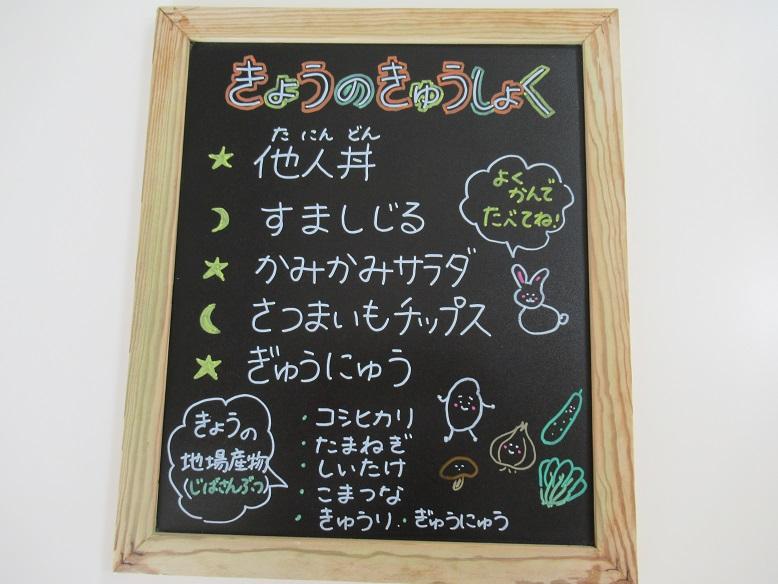 きょうのきゅうしょく
たにんどん
他人丼
すましじる
かみかみサラダ
さつまいもチップス
ぎゅうにゅう
よく
かんで
たべてね!
きょうの
地場産物
(じばさんぶつ)
・コシヒカリ
・たまねぎ
・しいたけ
・こまつな
・きゅうり・ぎゅうにゅう